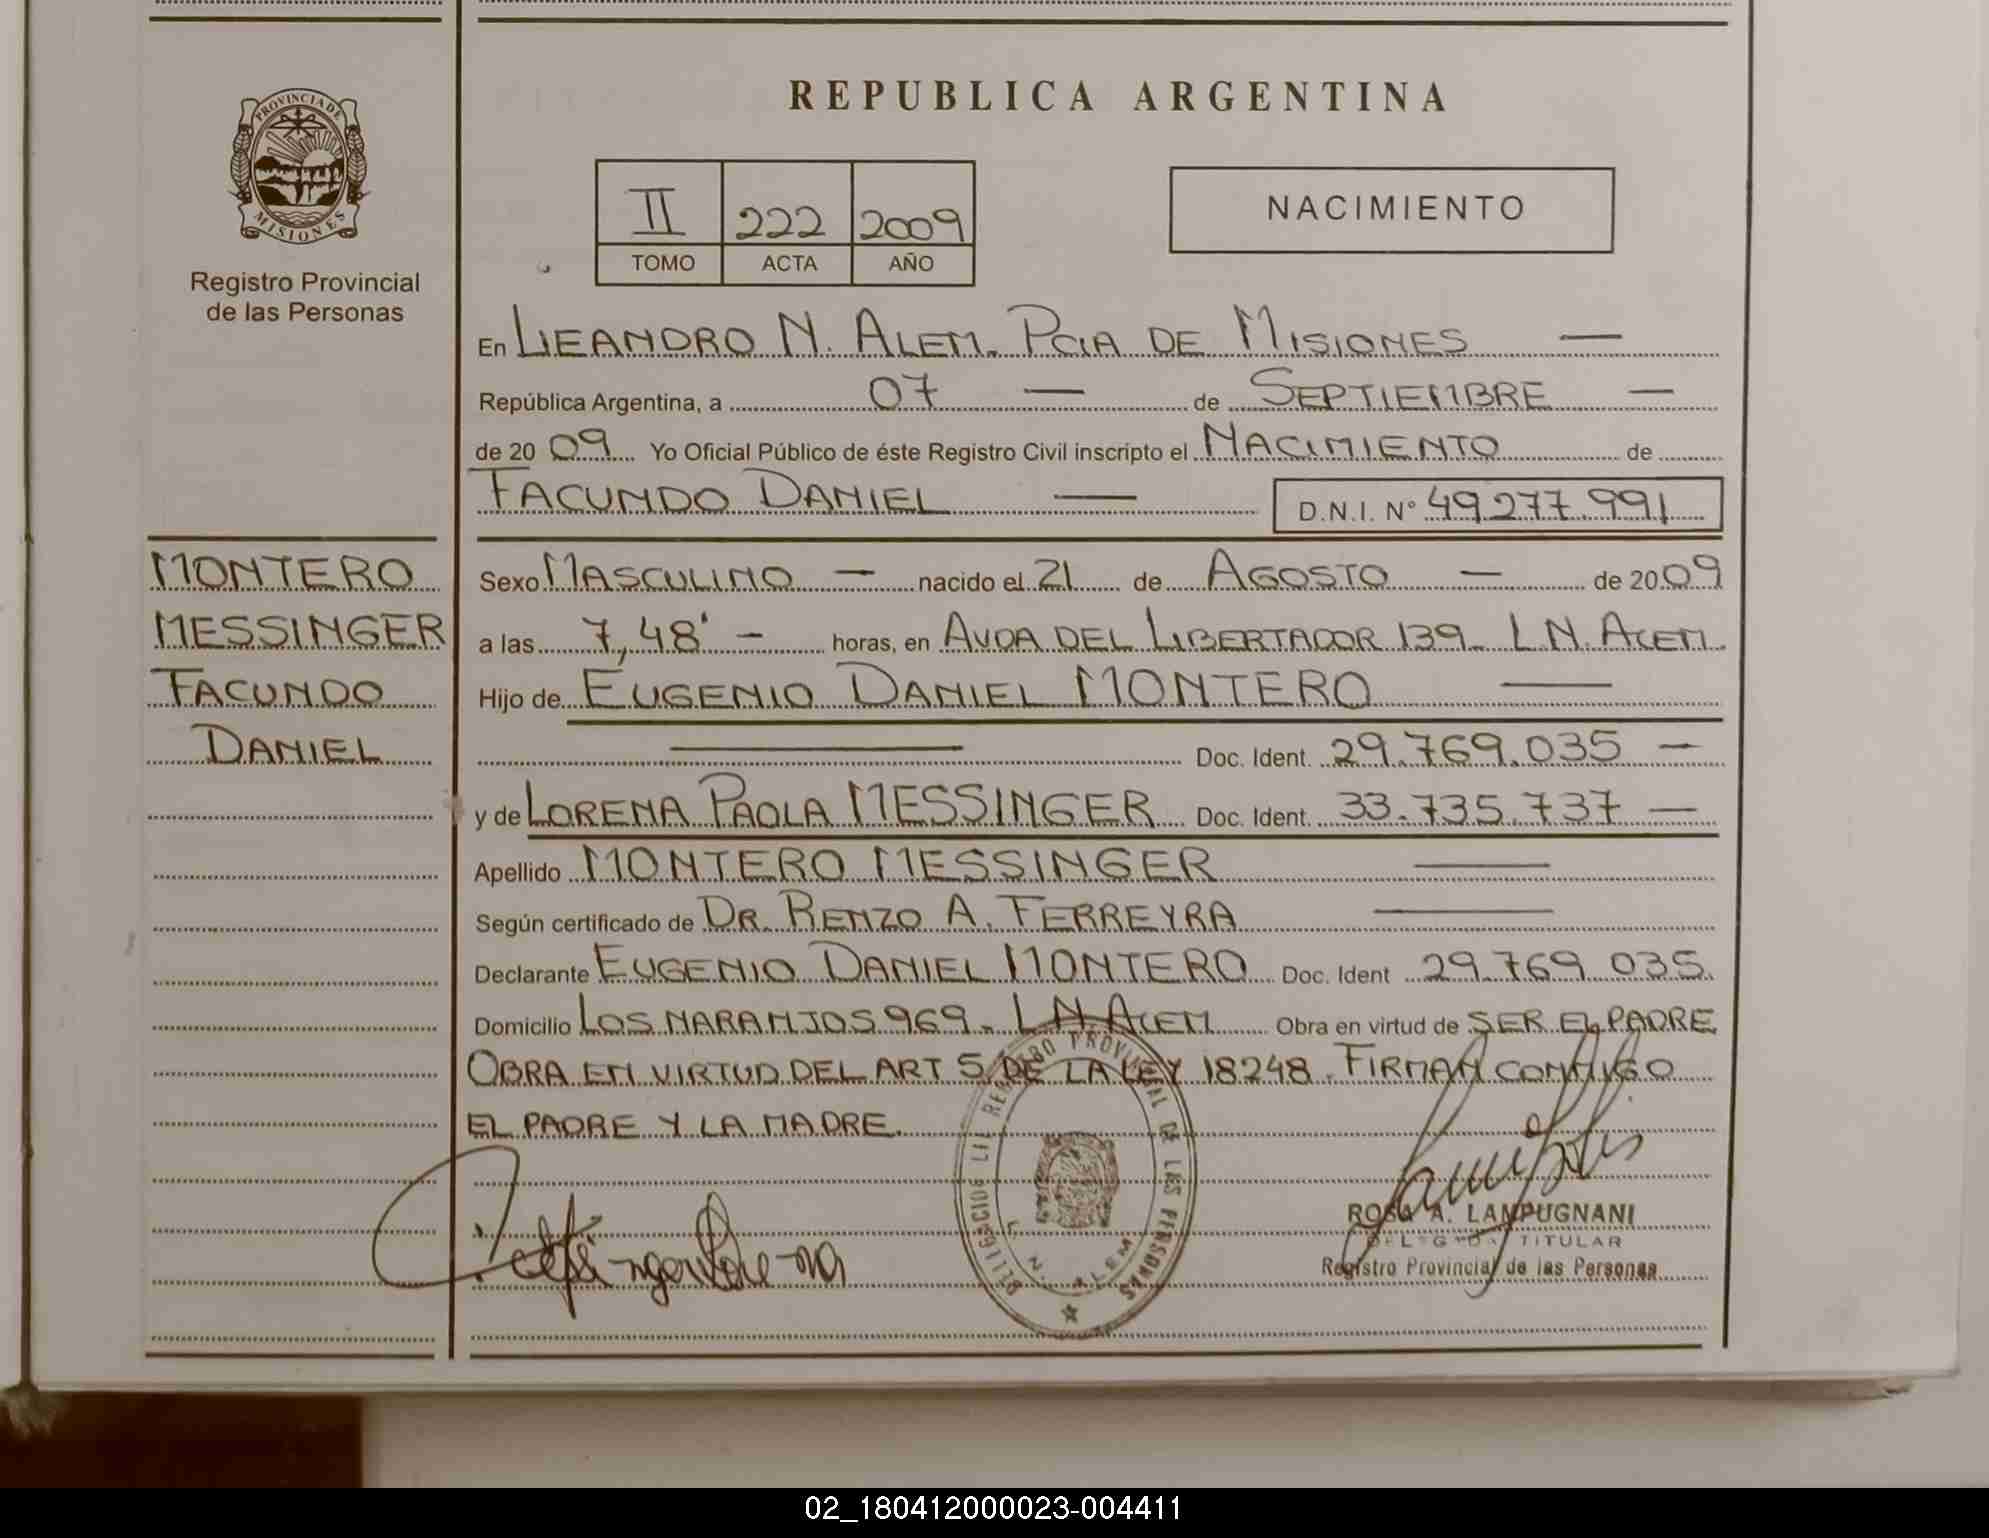 PROVINCIA DE
MISIONES
Registro Provincial
de las Personas
MONTERO
MESSINGER
FACUNDO
DANIEL
REPUBLICA ARGENTINA
II 222 2009
TOMO ACTA AÑO
NACIMIENTO
En LEANDRO N. ALEM. PCIA DE MISIONES —
República Argentina, a 07 — de SEPTIEMBRE —
de 20 09 Yo Oficial Público de éste Registro Civil inscripto el NACIMIENTO de
FACUNDO DANIEL — D.N.I. N° 49.277.991
Sexo MASCULINO — nacido el 21 de AGOSTO — de 20 09
a las 7,48' — horas, en AVDA DEL LIBERTADOR 139. L N. ALEM.
Hijo de EUGENIO DANIEL MONTERO —
— Doc. Ident. 29.769.035 —
y de LORENA PAOLA MESSINGER Doc. Ident. 33.735.737 —
Apellido MONTERO MESSINGER —
Según certificado de DR. RENZO A. FERREYRA —
Declarante EUGENIO DANIEL MONTERO Doc. Ident 29.769.035.
Domicilio LOS NARANJOS 969. L N. ALEM Obra en virtud de SER EL PADRE
OBRA EN VIRTUD DEL ART 5 DE LA LEY 18248. FIRMAN CONMIGO
EL PADRE Y LA MADRE.
REGISTRO PROVINCIAL DE LAS PERSONAS
L. N. ALEM
ROSA A. LAMPUGNANI
DELEGADA TITULAR
Registro Provincial de las Personas
02_180412000023-004411